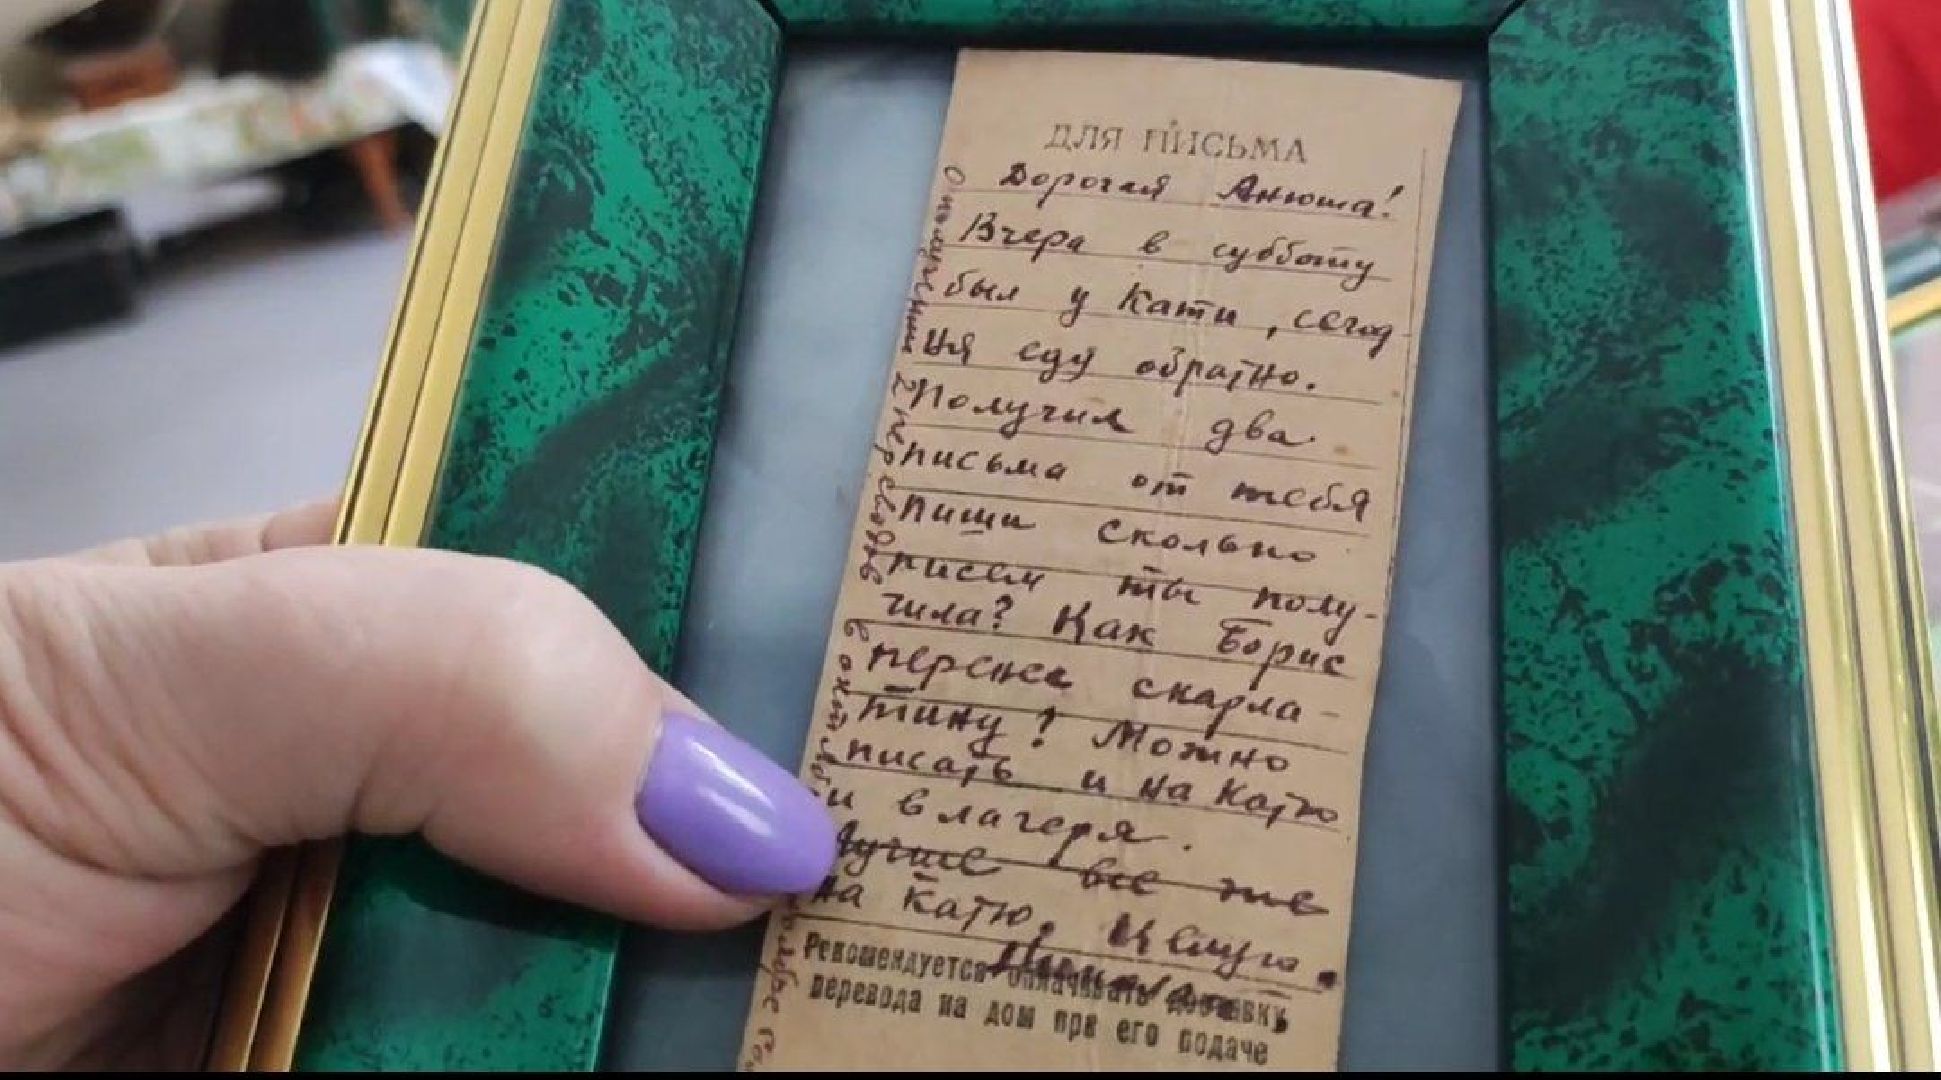 ДЛЯ ПИСЬМА
Дорогая Анюша!
Вчера в субботу
был у Кати, сегод
ня еду обратно.
Получил два
письма от тебя
пиши сколько
писем ты полу-
чила? Как Борис
перенес скарла-
тину? Можно
писать и на Катю
и в лагеря.
Лучше все же
на Катю. Целую.
Рекомендуется оплачивать доставку
перевода на дом при его подаче
О получении